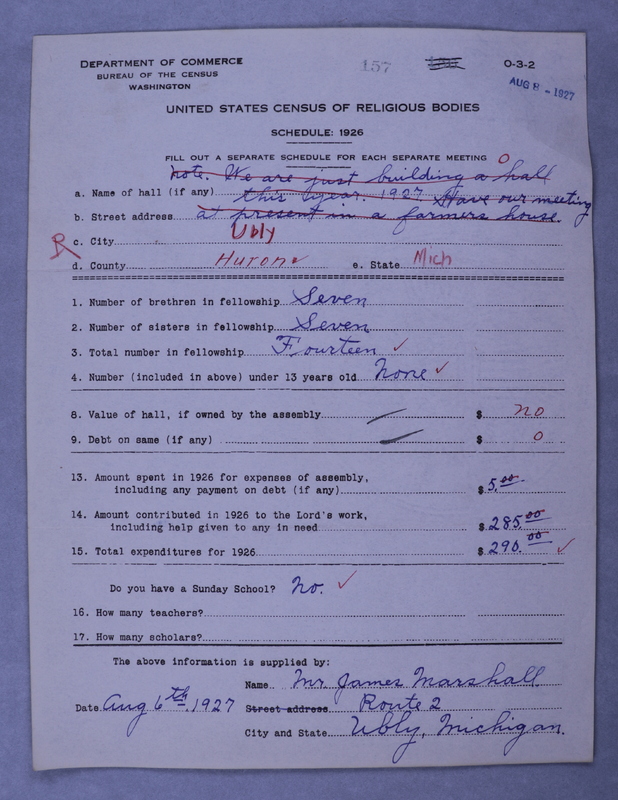 DEPARTMENT OF COMMERCE
BUREAU OF THE CENSUS
WASHINGTON
157
O-3-2
AUG 8 - 1927
UNITED STATES CENSUS OF RELIGIOUS BODIES
SCHEDULE: 1926
FILL OUT A SEPARATE SCHEDULE FOR EACH SEPARATE MEETING O
note. We are just building a hall
a. Name of hall (if any) this year. 1927. Have our meeting
b. Street address at present in a farmers house.
R
c. City Ubly
d. County Huron e. State Mich
1. Number of brethren in fellowship Seven
2. Number of sisters in fellowship Seven
3. Total number in fellowship Fourteen ✓
4. Number (included in above) under 13 years old None ✓
8. Value of hall, if owned by the assembly $ no
9. Debt on same (if any) $ 0
13. Amount spent in 1926 for expenses of assembly,
including any payment on debt (if any) $ 5.00
14. Amount contributed in 1926 to the Lord's work,
including help given to any in need $ 285.00
15. Total expenditures for 1926 $ 290.00 ✓
Do you have a Sunday School? No. ✓
16. How many teachers?
17. How many scholars?
The above information is supplied by:
Name Mr James Marshall
Date Aug 6th 1927 Street address Route 2
City and State Ubly, Michigan.